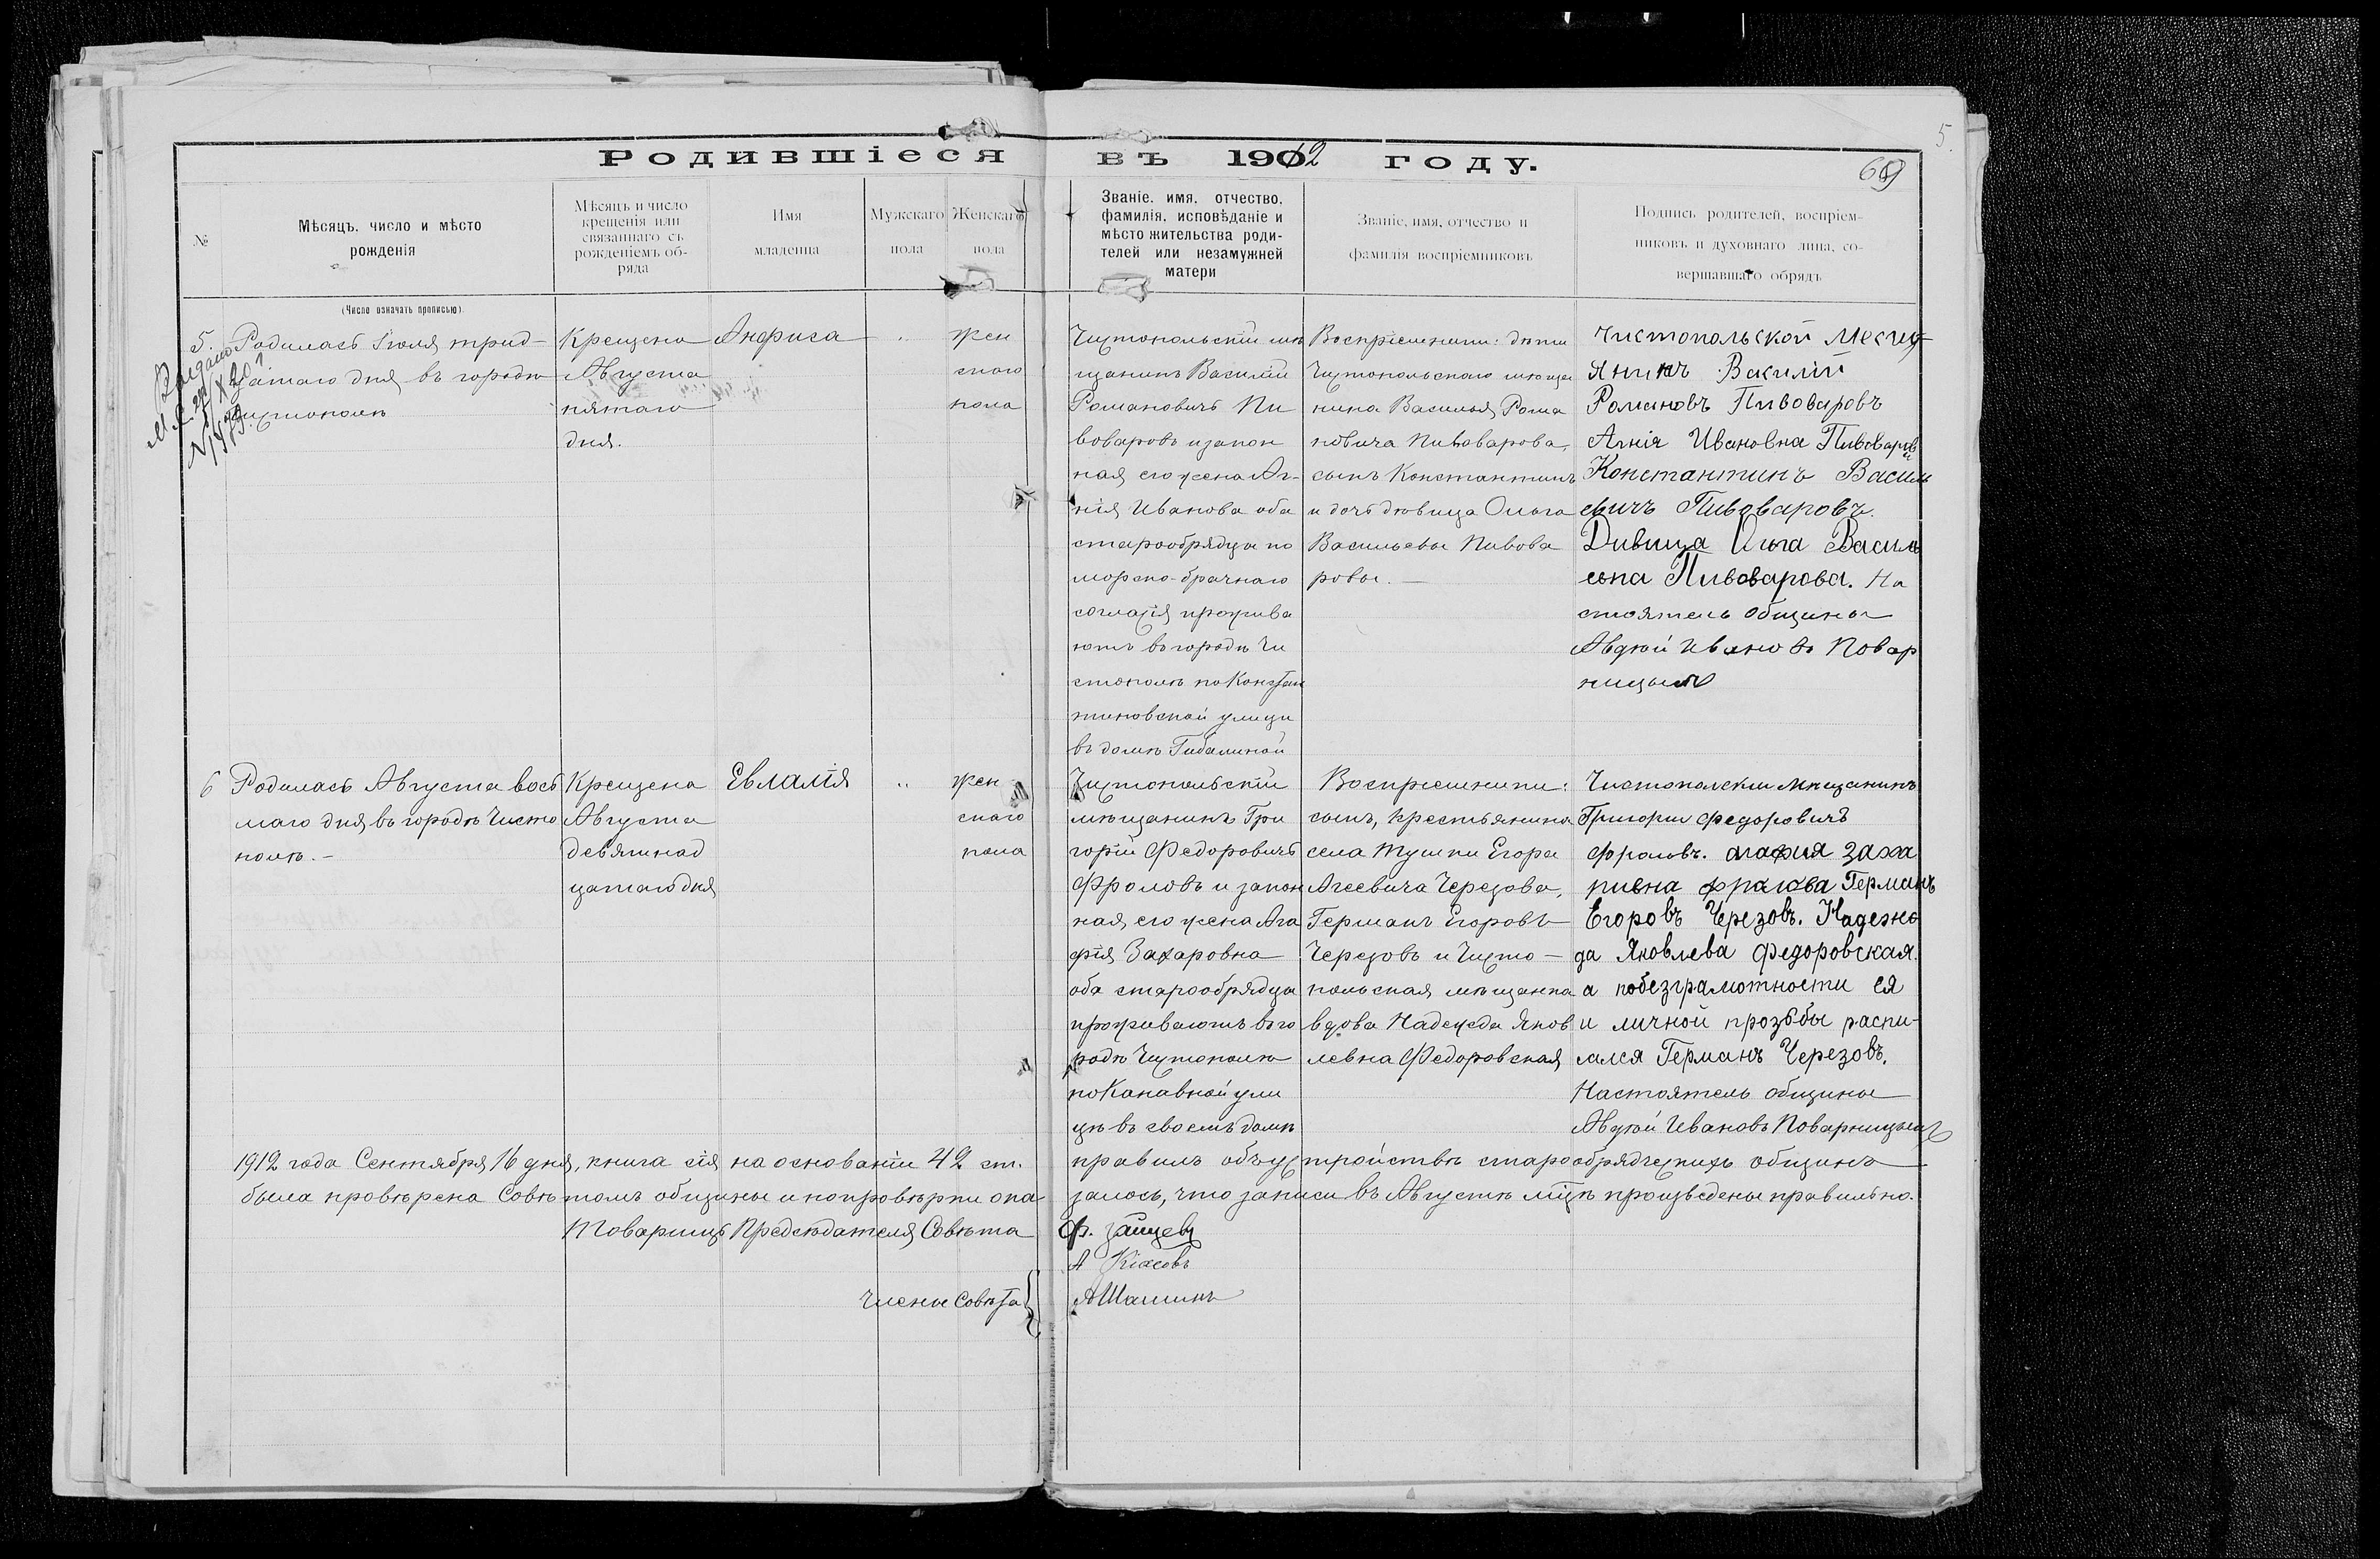 5.
Родившіеся въ 1912 году.
69
№
Мѣсяцъ, число и мѣсто
рожденія
(Число означать прописью).
Мѣсяцъ и число
крещенія или
связаннаго съ
рожденіемъ об-
ряда
Имя
младенца
Мужскаго
пола
Женскаго
пола
Званіе, имя, отчество,
фамилія, исповѣданіе и
мѣсто жительства роди-
телей или незамужней
матери
Званіе, имя, отчество и
фамилія воспріемниковъ
Подпись родителей, воспріем-
никовъ и духовнаго лица, со-
вершавшаго обрядъ
5.
Родилась Іюля трид-
цатаго дня въ городѣ
Чистополѣ
Крещена
Августа
пятаго
дня.
Анфиса
"
жен
скаго
пола
Чистопольскій мѣ
щанинъ Василій
Романовичъ Пи
воваровъ и закон
ная его жена Аг-
нія Иванова оба
старообрядцы по
морско-брачнаго
согласія прожива
ютъ въ городѣ Чи
стополѣ по Констан
тиновской улицѣ
въ домѣ Гибалиной
Воспріемники: дѣти
Чистопольскаго мѣща
нина Василья Рома
новича Пивоварова,
сынъ Константинъ
и дочь дѣвица Ольга
Васильевы Пивова
ровы.
Чистопольской Месчу
янинъ Василій
Романовъ Пивоваровъ
Агнія Ивановна Пивоваров
Константинъ Василь
евичъ Пивоваровъ.
Дивица Ольга Василь
евна Пивоварова. На
стоятель общины
Авдѣй Ивановъ Повар
ницынъ
6
Родилась Августа вось
маго дня въ городѣ Чисто
полѣ. -
Крещена
Августа
девятнад
цатаго дня
Евлалія
"
жен
скаго
пола
Чистопольскій
мѣщанинъ Гри
горій Федоровичъ
Фроловъ и закон
ная, его жена Ага
фія Захаровна
оба старообрядцы
проживаютъ въ го
родѣ Чистополѣ
по Канавной ули
цѣ въ своемъ домѣ
Воспріемники:
сынъ, крестьянина
села Мушки Егора
Агеевича Черезова,
Германъ Егоровъ
Черезовъ и Чисто-
польская мѣщанка
вдова Надежда Яков
левна Федоровская
Чистополскии мищанинъ
Григории федоровичъ
фроловъ. агафия заха
ривна фралова Германъ
Егоровъ Черезовъ. Надежс
да Яковлева Федоровская.
а побезграмотности ея
и личной прозьбы распи-
сался Германъ Черезовъ.
Настоятель общины
Авдѣй Ивановъ Поварницынъ
1912 года Сентября 16 дня, книга сія на основаніи 42 ст. правилъ объ устройствѣ старообрядческихъ общинъ
была провѣрена Совѣтомъ общины и по провѣрки ока залось, что записи въ Августѣ мцѣ произведены правильно.
Товарищъ Предсѣдателя Совѣта Ф. Зайцевъ
Члены Совѣта
АШашинъ